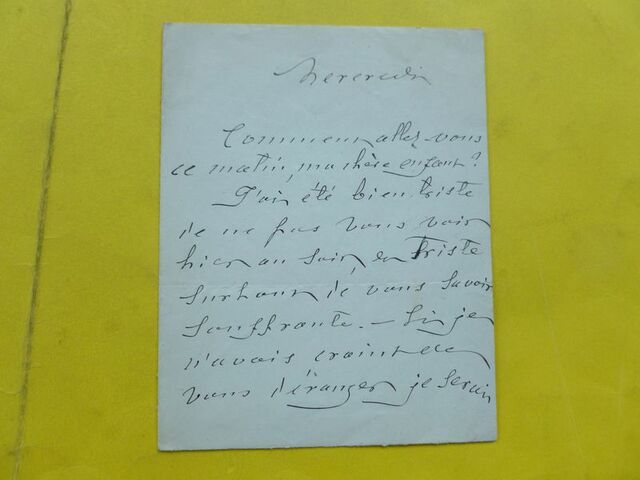 Mercredi
Comment allez-vous
ce matin, ma chère enfant ?
J'ai été bien triste
de ne pas vous voir
hier au soir, et triste
surtout de vous savoir
souffrante. – Si je
n'avais craint de
vous déranger je serais